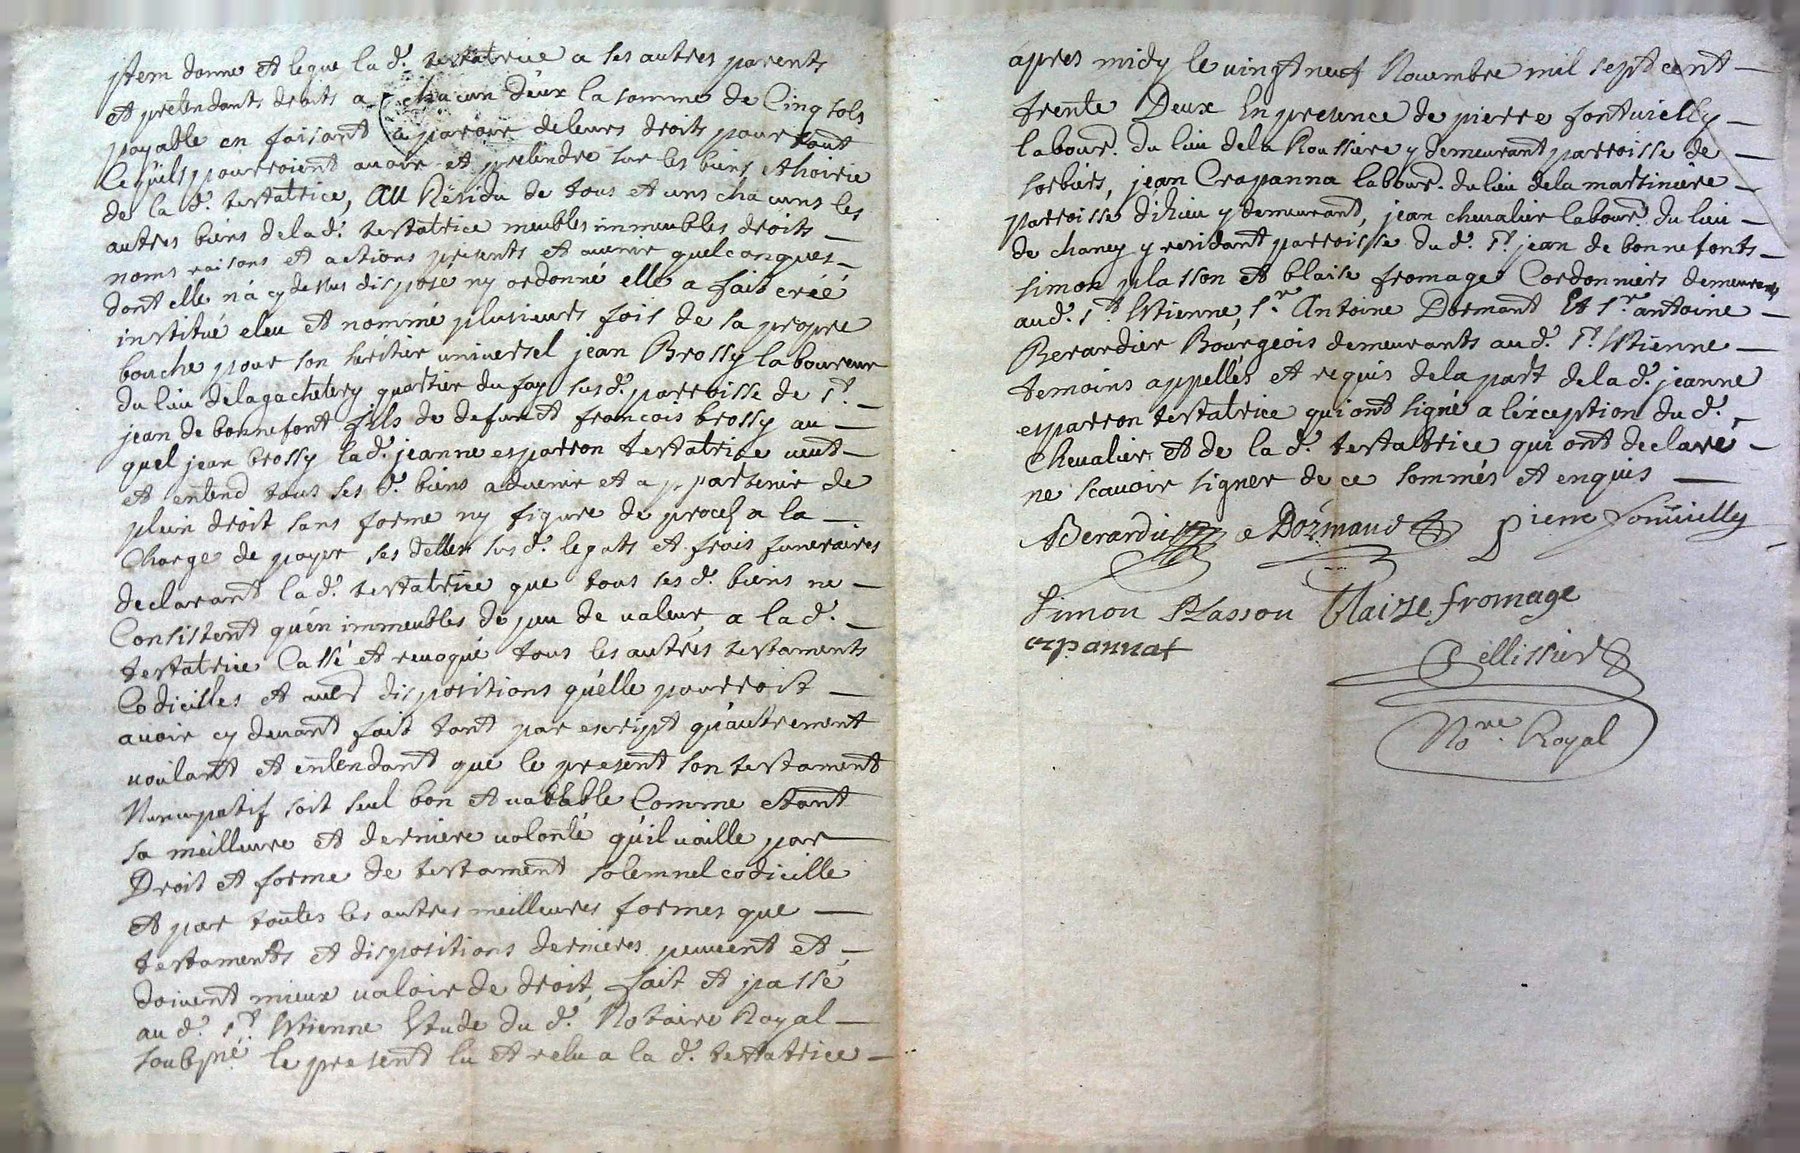 jtem donne et legue la d.e testatrice a ses autres parents
et pretendants droits a chacun d'eux la somme de Cinq sols
payable en faisant a paroir de leurs droits pour tout
ce qu'ils pourroient auoir et pretendre sur les biens et hoirie
de la d.e testatrice, au Residu de tous et uns chacuns les
autres biens de la d.e testatrice meubles immeubles droits
noms raisons et actions presents et auenir quelconques
dont elle n'a cy dessus disposé ny ordonné elle a fait créé
institué eleu et nommé plusieurs fois de sa propre
bouche pour son heritier universel jean Brossy laboureur
du lieu de lagachetery quartier du fay susd.e parroisse de s.t
jean de bonnefont fils de defunct francois brossy au
quel jean brossy la d.e jeanne esparron testatrice ueut
et entend tous ses d.s biens aduenir et appartenir de
plein droit sans forme ny figure de procez a la
Charge de payer ses dettes sus d.s legats et frois funeraires
declarant la d.e testatrice que tous ses d.s biens ne
Consistent qu'en immeubles de peu de ualeur, a la d.e
testatrice Cassé et reuoqué tous les autres testaments
Codicilles et dispositions qu'elle pourroit
auoir cy deuant fait tant par escript qu'autrement
uoulant et entendant que le present son testament
Nuncupatif soit seul bon et uallable Comme etant
sa meilleure et derniere uolonté qu'il uaille par
Droit et forme de testament solemnel codicille
et par toutes les autres meilleures formes que
testaments et dispositions dernieres peuuent et
doiuent mieux ualoir de droit, fait et passé
au d. s.t Estienne Estude du d. Notaire Royal
soubz.né le present lu et relu a la d.e testatrice
apres midy le uingt neuf Nouembre mil sept cent
trente Deux En presence de pierre fontuielly
labour. du lieu de la Roussiere y demeurant parroisse de
sorbiers, jean Crapanna labour. du lieu de la martiniere
parroisse d'ihieu y demeurant, jean cheualier labour. du lieu
de chaney y residant parroisse du d. s.t jean de bonnefonts
simon plasson et blaise fromage Cordonniers demeurants
aud. s.t Estienne, s.r Antoine Dormant Et s.r antoine
Berardier Bourgeois demeurants aud. s.t Estienne
temoins appellés et requis de la part de la d.e jeanne
esparron testatrice qui ont signé a l'exception du d.
Cheualier et de la d.e testatrice qui ont declaré
ne scauoir signer de ce sommés et enquis
Berardier Dormand Pierre fontuielly
Simon Plasson Blaize fromage
crpannat
Pellissier
No.re Royal